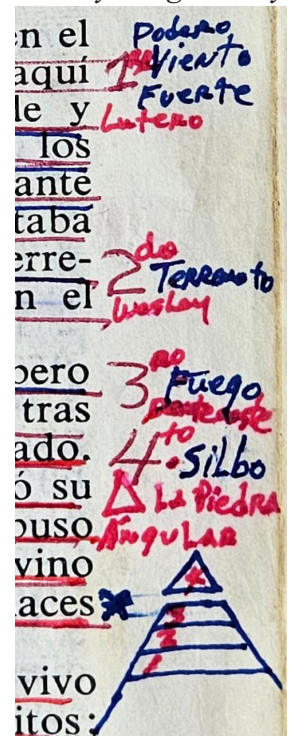 en el
aquí
le y
los
ante
taba
erre-
n el
pero
tras
ado.
ó su
puso
vino
aces
vivo
itos:
Podero
1ro Viento
Fuerte
Lutero
2do
Terremoto
Wesley
3ro Fuego
Pentecoste
4to. Silbo
La Piedra
Angular
4
3
2
1